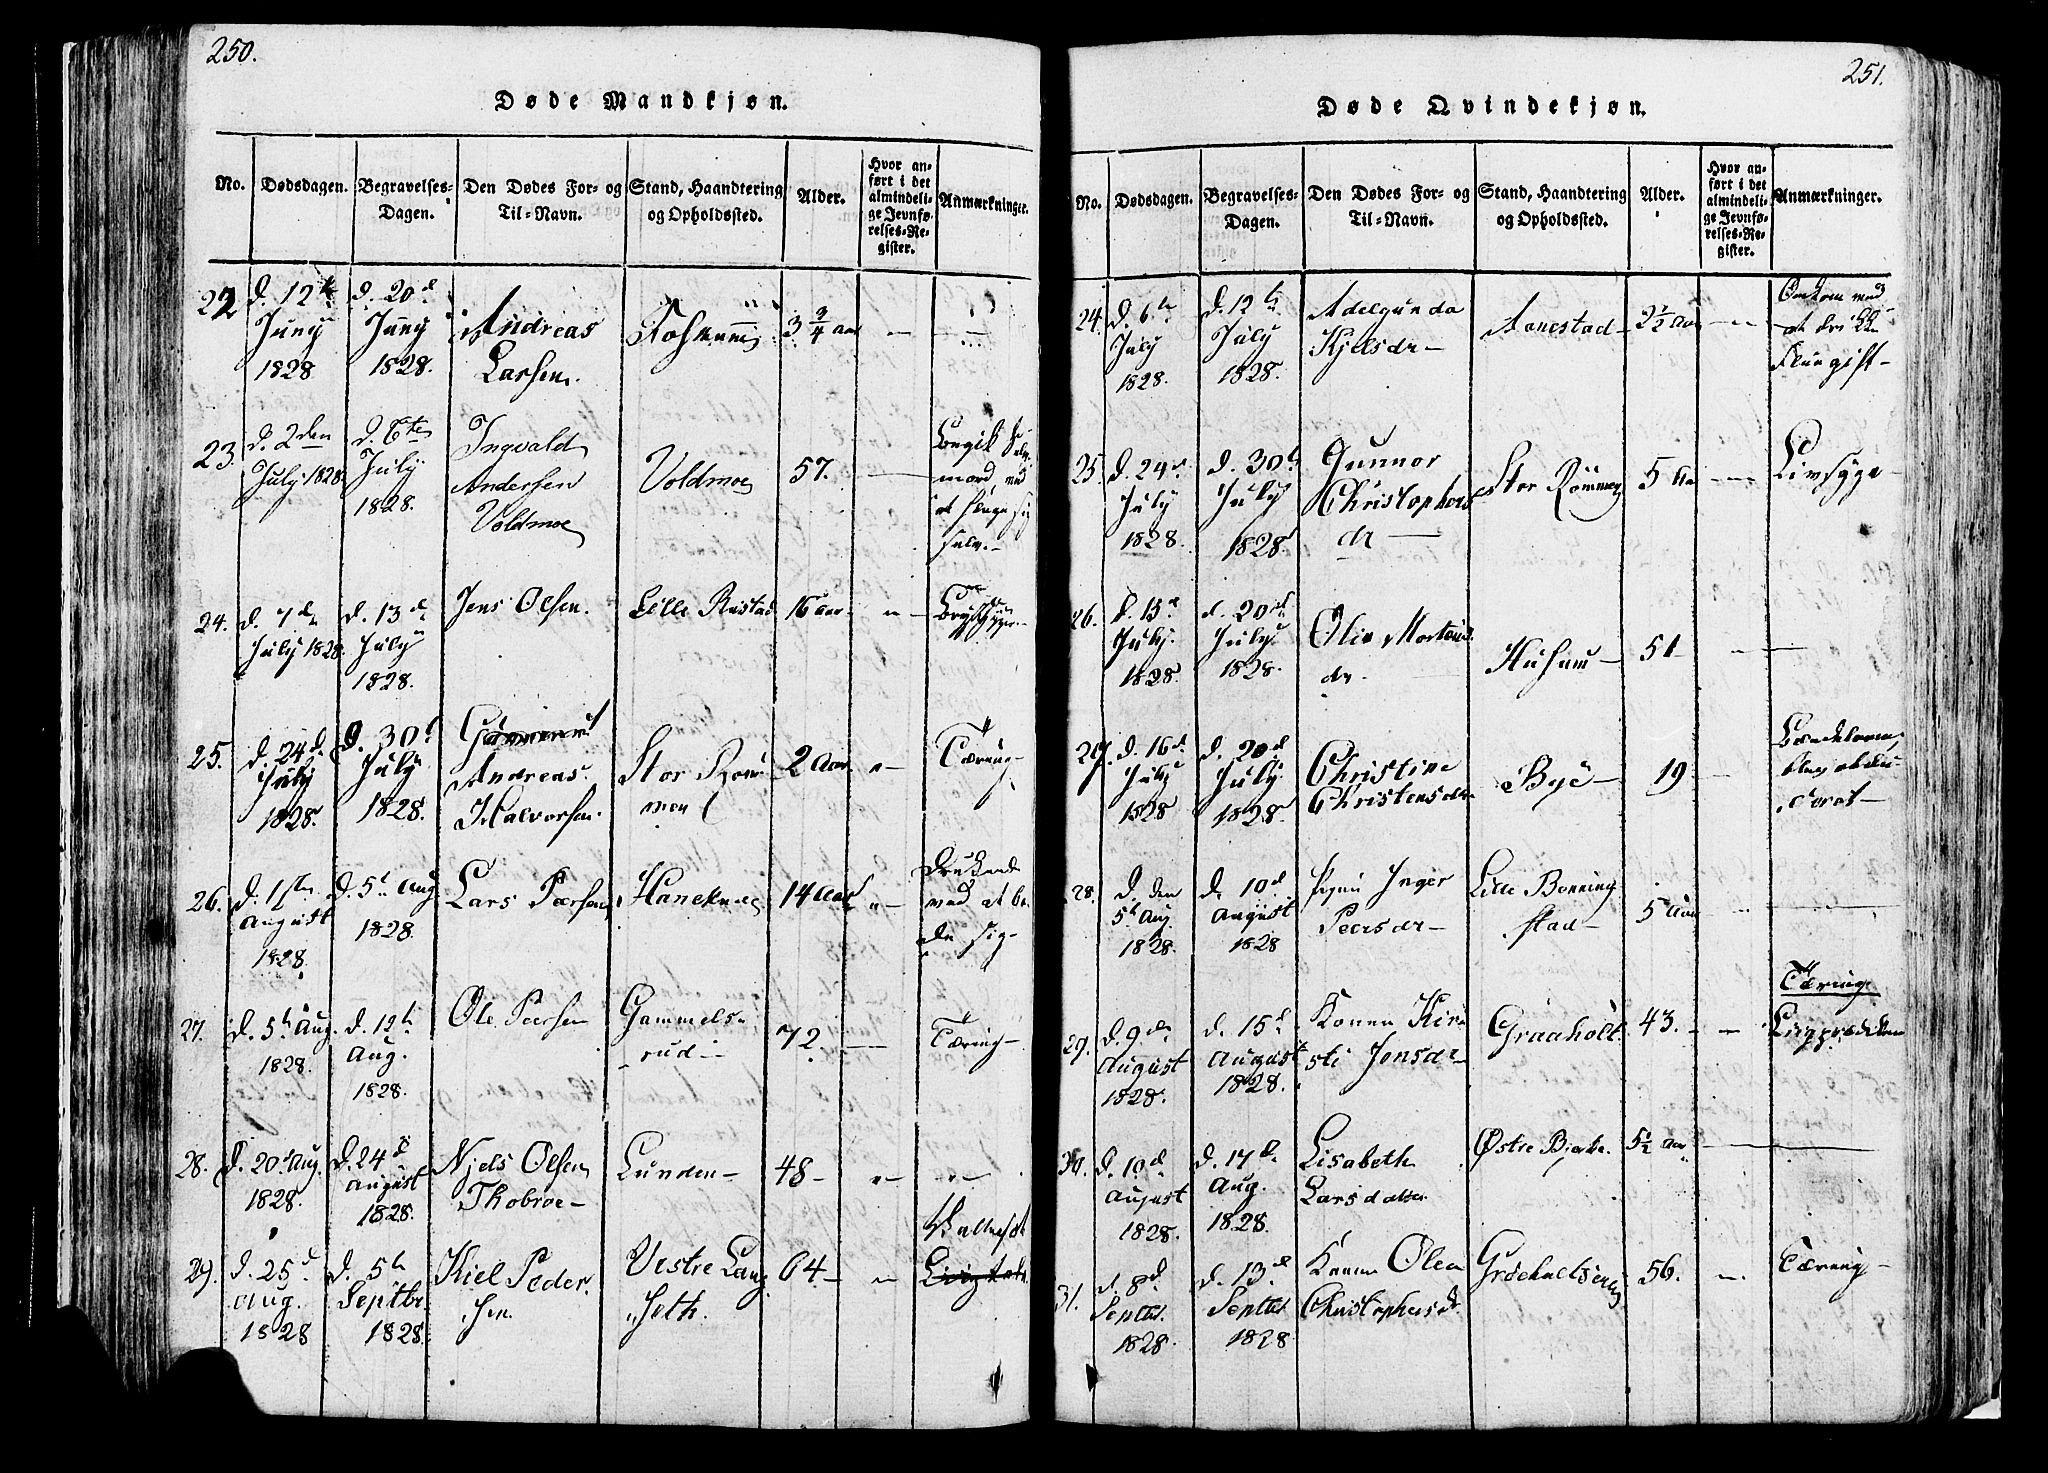 250.
Døde Mandkjøn.
No. Dødsdagen. Begravelses-Dagen. Den Dødes For- og Til-Navn. Stand, Haandtering og Opholdssted. Alder. Hvor anført i det almindelige Jevnførelses-Register. Anmærkninger.
22 d. 12te d. 20de
Juny Juny Andreas 3 3/4 aar — —
1828 1828. Larsen.
23. d. 2den d. 6te Ingvald
July 1828. July Andersen Voldmoe 57. — mord, ved
1828. Voldmoe at hænge sig
selv. —
24. d. 7de d. 13de Jens Olsen. Lille Rustad 16 aar — " — Brystsyge —
July 1828. July
1828.
25. d. 24de d. 30te
July July Andreas Stor Røm- 2 Aar " — Tæring —
1828. 1828. Halvorsen. men
26. d. 1sten d. 5te Aug Lars Peersen, Haneknæ 14 Aar " — Druknede
August 1828. ved at ba-
1828. de sig —
27. d. 5te Aug. d. 12te Ole Peersen Gammels- 72. — Tæring —
1828. Aug. rud —
1828.
28. d. 20de Aug. d. 24de Njels Olsen Lunden — 48 — " — " —
1828. August Thobroe —
1828.
29. d. 25de d. 5te Kiel Peder- Vestre Lang- 64 — " —
Aug. Septbr sen. seth.
1828 1828.
251.
Døde Qvindekjøn.
No. Dødsdagen. Begravelses-Dagen. Den Dødes For- og Til-Navn. Stand, Haandtering og Opholdssted. Alder. Hvor anført i det almindelige Jevnførelses-Register. Anmærkninger.
24. d. 6te d. 12te Adelgunda Aanestad — 2 1/2 Aar — " — Omkom ved
July July Kjelsdr — at drikke
1828. 1828. Fluegift —
25. d. 24de d. 30te Gunnor Stor Rømmen 5 Aa — Livsyge —
July July Christophers
1828. 1828. dr —
26. d. 13de d. 20de Olia Mortens
July. July dr. Husum — 51 — " —
1828. 1828.
27. d. 16de d. 20de Christine Bye — 19 —
July July Christensdr
1828 1828.
28. d. den d. 10de Pigen Inger Lille Bonning 5 Aar — " —
5te Aug August Peersdr — stad —
1828. 1828
Tæring.
29. d. 9de d. 15de Konen Kir- Graaholt 43. — "
August August sti Jensdr —
1828. 1828.
30. d. 10de d. 17de Lisabeth Østre Bjerke. 5 1/2 Aar —
August Aug. Larsdatter
1828. 1828.
31. d. 8de d. 13de Konen Olea 56. — " Tæring —
Septbr. Septbr Christophersdr.
1828. 1828